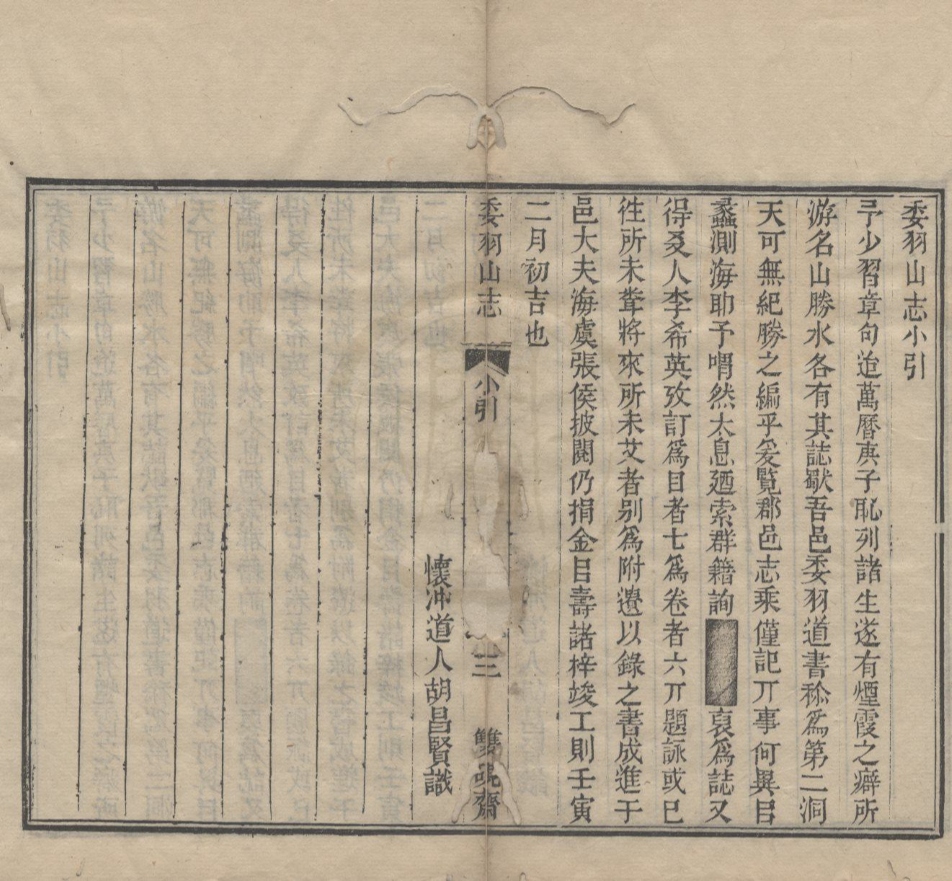 委羽山志小引
予少習章句迨萬曆庚子恥列諸生遂有煙霞之癖所
游名山勝水各有其誌歟吾邑委羽道書稱爲第二洞
天可無紀勝之編乎爰覽郡邑志乘僅記丌事何異目
蠡測海耶予喟然太息廼索群籍詢 裒爲誌又
得叐人李希英攷訂爲目者七爲卷者六丌題詠或已
徃所未耷將來所未艾者别爲附遺以錄之書成進于
邑大夫海虞張侯披閱仍捐金目壽諸梓竣工則壬寅
二月初吉也
懷冲道人胡昌賢識
委羽山志
小引
三
雙 齋